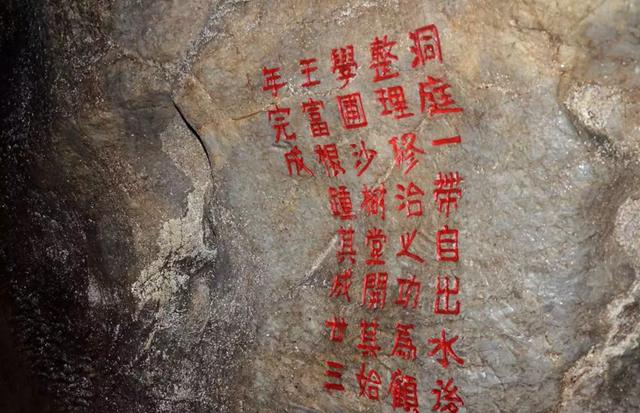 洞庭一帶自出水後
整理修治之功為顧
學圃沙樹堂開其始
王富根踵其成廿三
年完成